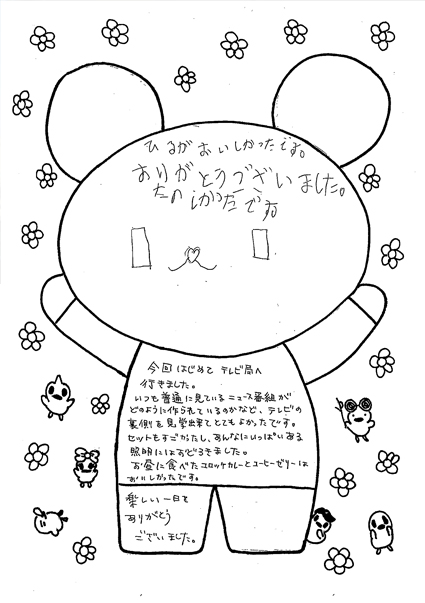 ひるがおいしかったです。
ありがとうございました。
たのしかったです
今回はじめて テレビ局へ
行きました。
いつも普通に見ているニュース番組が
どのように作られているのかなど、テレビの
裏側を見学出来てとてもよかったです。
セットもすごかたし、あんなにいっぱいある
照明にはおどろきました。
お昼に食べたコロッケカレーとコーヒーゼリーは
おいしかったです。
楽しい一日を
ありがとう
ございました。